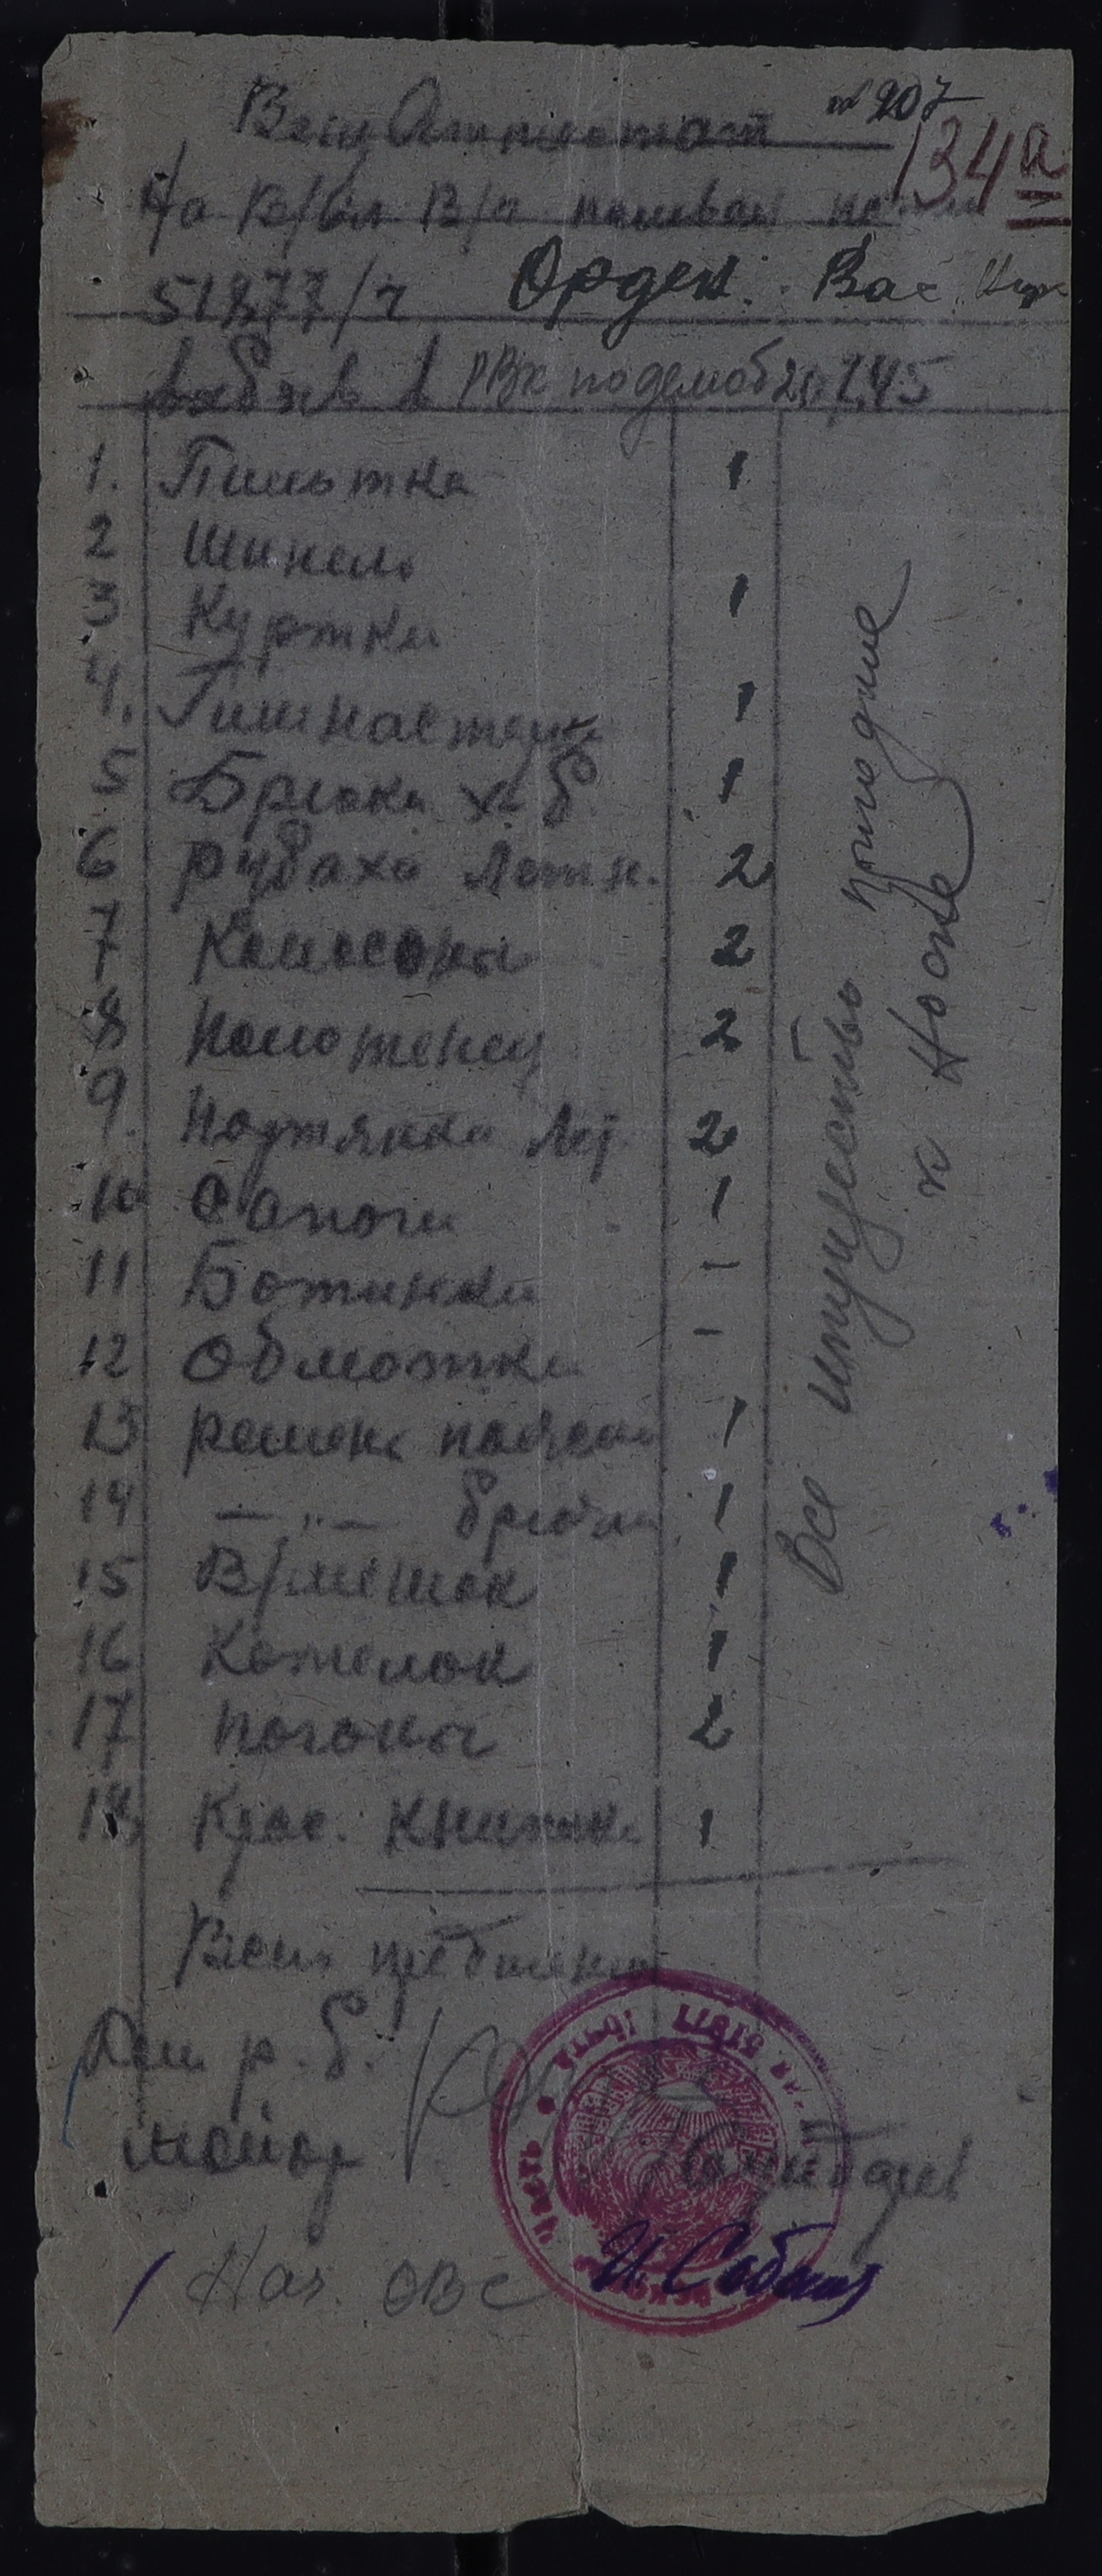 Вещ Аттестат № 207
134а
На кр/ец В/ч полевая почта
51877/г Орден. Вас.
выбыв. в РВК по демоб 20,7,45
1. Пилотка 1
2 Шинель
3 Куртка 1
4. Гимнастерка 1
5 Брюки х б 1
6 рубаха летн. 2
7 Кальсоны 2
8 Полотенец 2
9. Портянки лет 2
10 Сапоги 1
11 Ботинки –
12 Обмотки –
13 ремень поясной 1
14 — " — брючн 1
15 В/мешок 1
16 Котелок 1
17 погоны 2
18 Крас. Книжка 1
Все имущество пригодное
к носке
р. б.
майор
Нач. ОВС